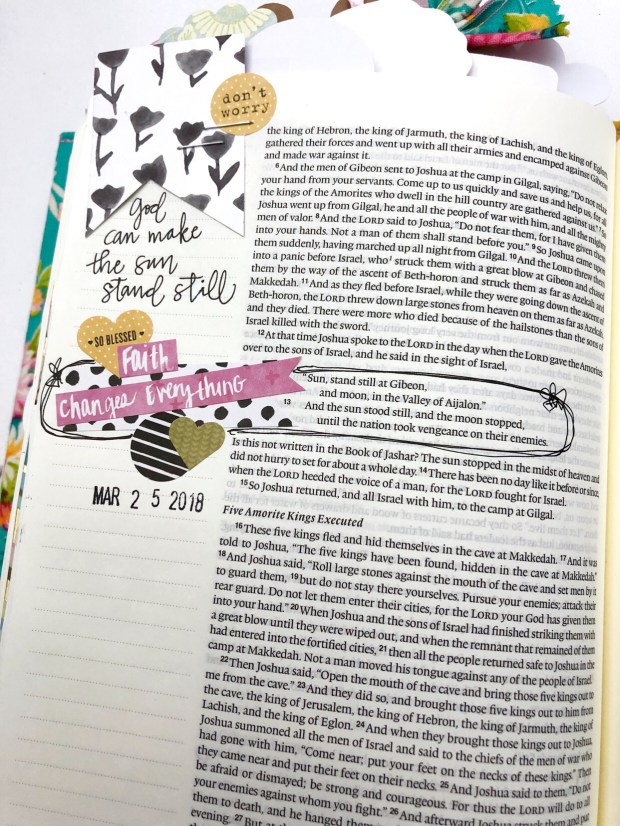 don't
worry
God
can make
the sun
stand still
SO BLESSED
Faith
Changes Everything
MAR 25 2018
the king of Hebron, the king of Jarmuth, the king of Lachish, and the king of Eglon,
gathered their forces and went up with all their armies and encamped against Gibeon
and made war against it.
6And the men of Gibeon sent to Joshua at the camp in Gilgal, saying, "Do not relax
your hand from your servants. Come up to us quickly and save us and help us, for all
the kings of the Amorites who dwell in the hill country are gathered against us." 7So
Joshua went up from Gilgal, he and all the people of war with him, and all the mighty
men of valor. 8And the LORD said to Joshua, "Do not fear them, for I have given them
into your hands. Not a man of them shall stand before you." 9So Joshua came upon
them suddenly, having marched up all night from Gilgal. 10And the LORD threw them
into a panic before Israel, who struck them with a great blow at Gibeon and chased
them by the way of the ascent of Beth-horon and struck them as far as Azekah and
Makkedah. 11And as they fled before Israel, while they were going down the ascent of
Beth-horon, the LORD threw down large stones from heaven on them as far as Azekah,
and they died. There were more who died because of the hailstones than the sons of
Israel killed with the sword.
12At that time Joshua spoke to the LORD in the day when the LORD gave the Amorites
over to the sons of Israel, and he said in the sight of Israel,
"Sun, stand still at Gibeon,
and moon, in the Valley of Aijalon."
13 And the sun stood still, and the moon stopped,
until the nation took vengeance on their enemies.
Is this not written in the Book of Jashar? The sun stopped in the midst of heaven and
did not hurry to set for about a whole day. 14There has been no day like it before or since,
when the LORD heeded the voice of a man, for the LORD fought for Israel.
15So Joshua returned, and all Israel with him, to the camp at Gilgal.
Five Amorite Kings Executed
16These five kings fled and hid themselves in the cave at Makkedah. 17And it was
told to Joshua, "The five kings have been found, hidden in the cave at Makkedah."
18And Joshua said, "Roll large stones against the mouth of the cave and set men by it
to guard them, 19but do not stay there yourselves. Pursue your enemies; attack their
rear guard. Do not let them enter their cities, for the LORD your God has given them
into your hand." 20When Joshua and the sons of Israel had finished striking them with
a great blow until they were wiped out, and when the remnant that remained of them
had entered into the fortified cities, 21then all the people returned safe to Joshua in the
camp at Makkedah. Not a man moved his tongue against any of the people of Israel.
22Then Joshua said, "Open the mouth of the cave and bring those five kings out to
me from the cave." 23And they did so, and brought those five kings out to him from
the cave, the king of Jerusalem, the king of Hebron, the king of Jarmuth, the king of
Lachish, and the king of Eglon. 24And when they brought those kings out to Joshua,
Joshua summoned all the men of Israel and said to the chiefs of the men of war who
had gone with him, "Come near; put your feet on the necks of these kings." Then
they came near and put their feet on their necks. 25And Joshua said to them, "Do not
be afraid or dismayed; be strong and courageous. For thus the LORD will do to all
your enemies against whom you fight." 26And afterward Joshua struck them and put
them to death, and he hanged them
evening. 27But at the